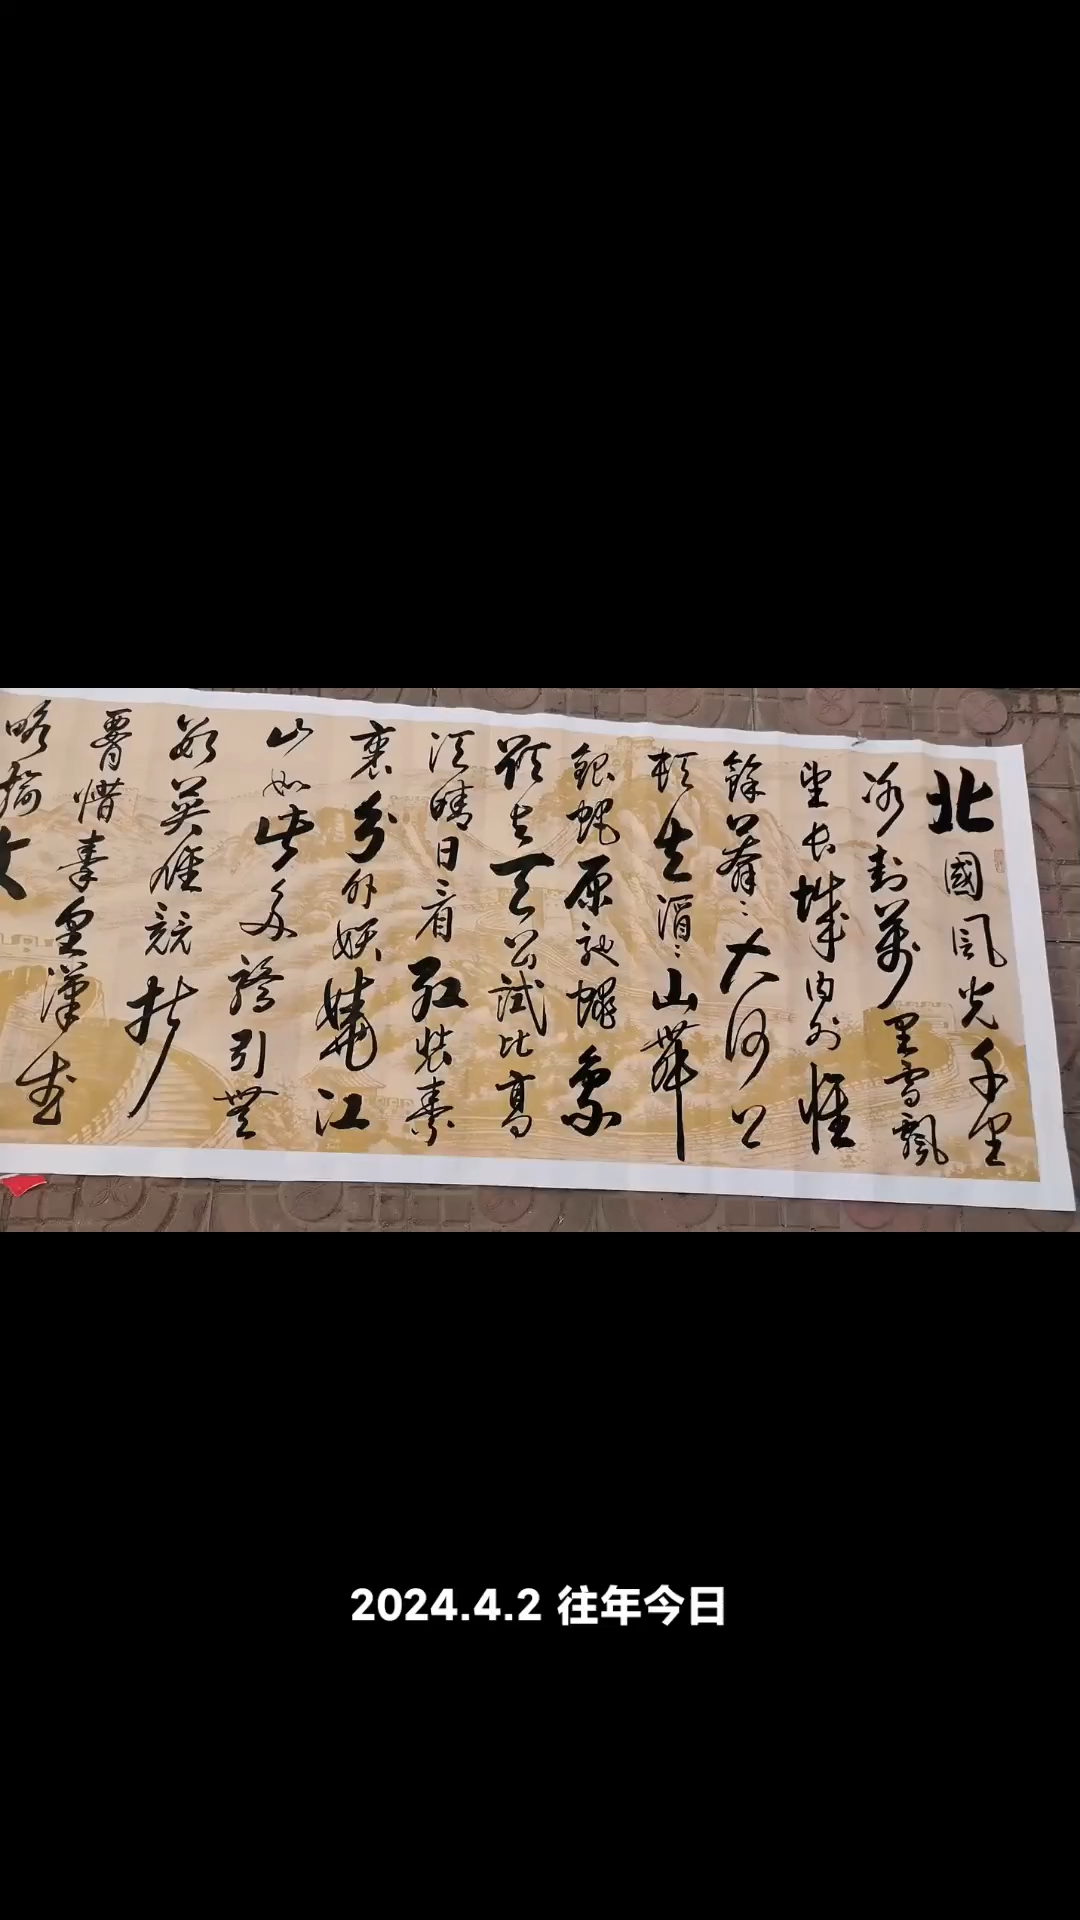 北國風光千里
冰封萬里雪飄
望長城内外惟
餘莽〻大河上
頓失滔〻山舞
銀蛇原馳蠟象
欲与天公試比高
須晴日看紅裝素
裹分外妖嬈江
山如此多嬌引無
數英雄競折
腰惜秦皇漢武
略輸文
2024.4.2 往年今日